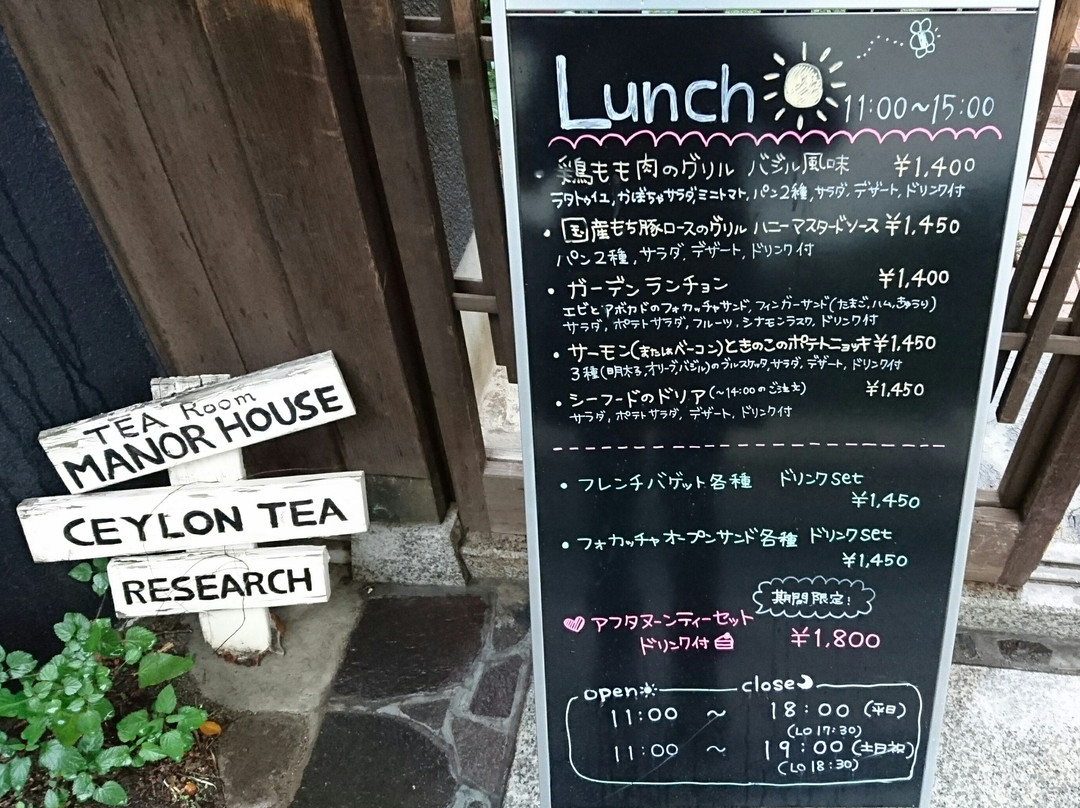 TEA Room
MANOR HOUSE
CEYLON TEA
RESEARCH
Lunch 11:00~15:00
・鶏もも肉のグリル バジル風味 ¥1,400
ラタトゥイユ,かぼちゃサラダ,ミニトマト,パン2種,サラダ,デザート,ドリンク付
・国産もち豚ロースのグリル ハニーマスタードソース ¥1,450
パン2種,サラダ,デザート,ドリンク付
・ガーデンランチョン ¥1,400
エビとアボカドのフォカッチャサンド,フィンガーサンド(たまご,ハム,きゅうり)
サラダ,ポテトサラダ,フルーツ,シナモンラスク,ドリンク付
・サーモン(またはベーコン)ときのこのポテトニョッキ ¥1,450
3種(明太子,オリーブ,バジル)のブルスケッタ,サラダ,デザート,ドリンク付
・シーフードのドリア(~14:00のご注文) ¥1,450
サラダ,ポテトサラダ,デザート,ドリンク付
・フレンチバゲット各種 ドリンクset
¥1,450
・フォカッチャオープンサンド各種 ドリンクset
¥1,450
期間限定!
アフタヌーンティーセット
ドリンク付 ¥1,800
open close
11:00 ~ 18:00 (平日)
(LO 17:30)
11:00 ~ 19:00 (土日祝)
(LO 18:30)